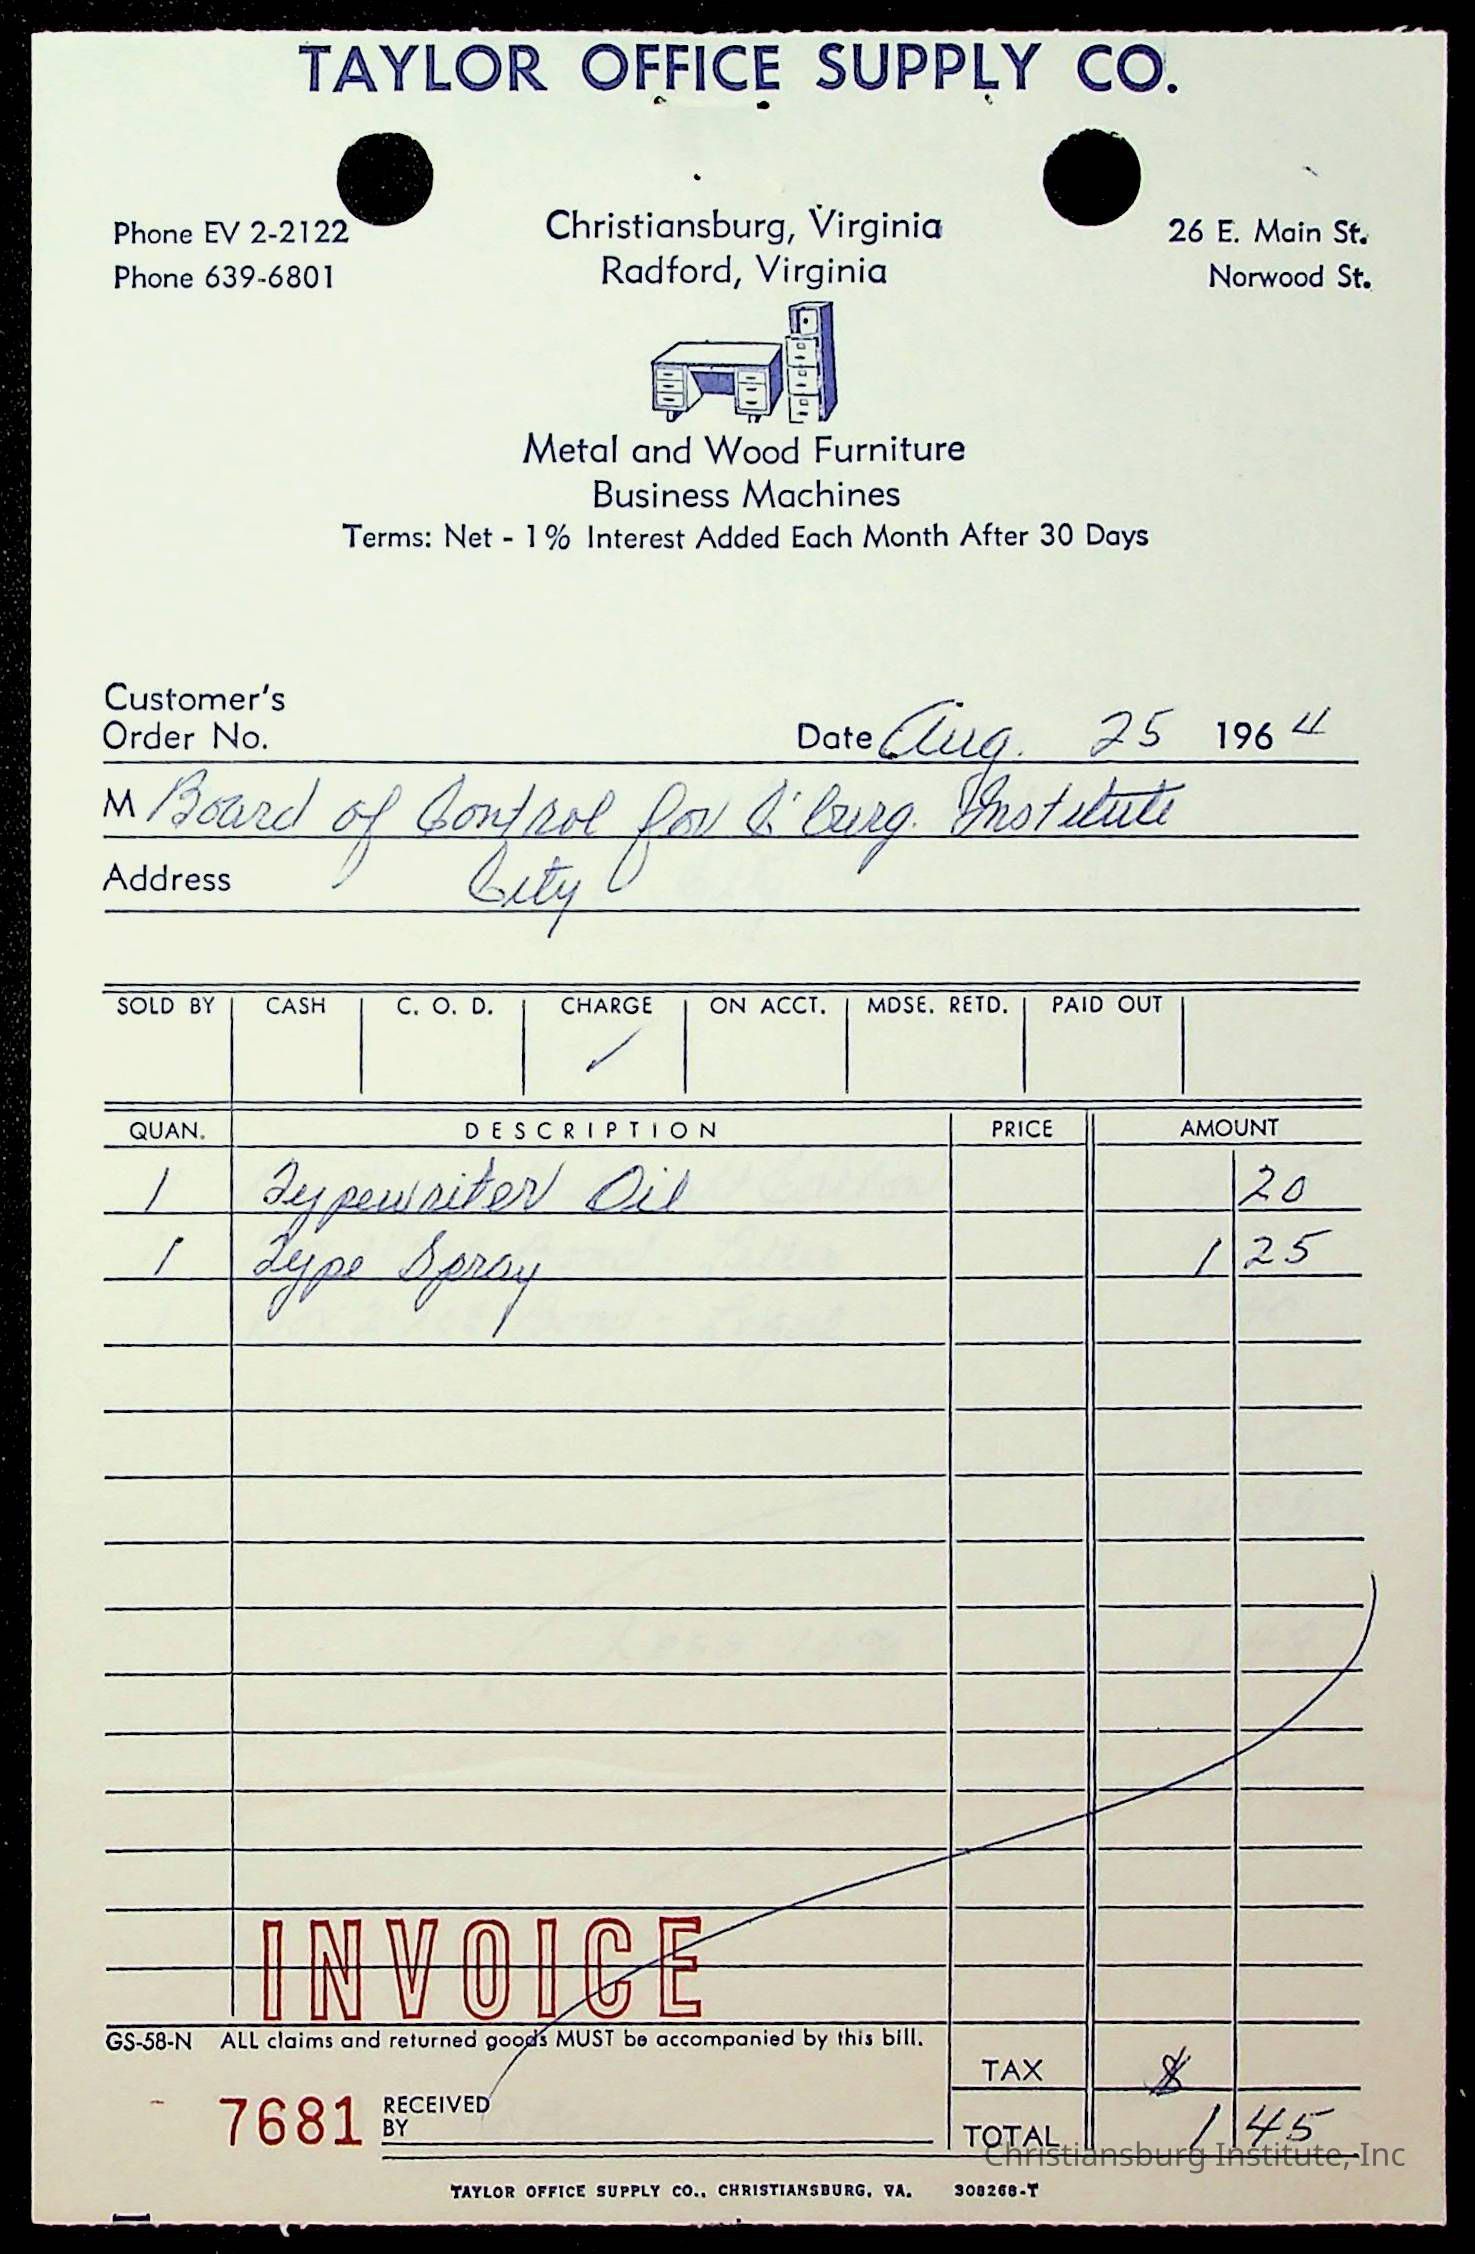 TAYLOR OFFICE SUPPLY CO.
Phone EV 2-2122 Christiansburg, Virginia 26 E. Main St.
Phone 639-6801 Radford, Virginia Norwood St.
Metal and Wood Furniture
Business Machines
Terms: Net - 1% Interest Added Each Month After 30 Days
Customer's
Order No. Date Aug. 25 1964
M Board of Control for C'burg. Institute
Address City
SOLD BY CASH C. O. D. CHARGE ON ACCT. MDSE. RETD. PAID OUT
✓
QUAN. DESCRIPTION PRICE AMOUNT
1 Typewriter Oil 20
1 Type Spray 1 25
INVOICE
GS-58-N ALL claims and returned goods MUST be accompanied by this bill.
TAX $
7681 RECEIVED
BY TOTAL 1 45
Christiansburg Institute, Inc
TAYLOR OFFICE SUPPLY CO., CHRISTIANSBURG, VA. 308268-T